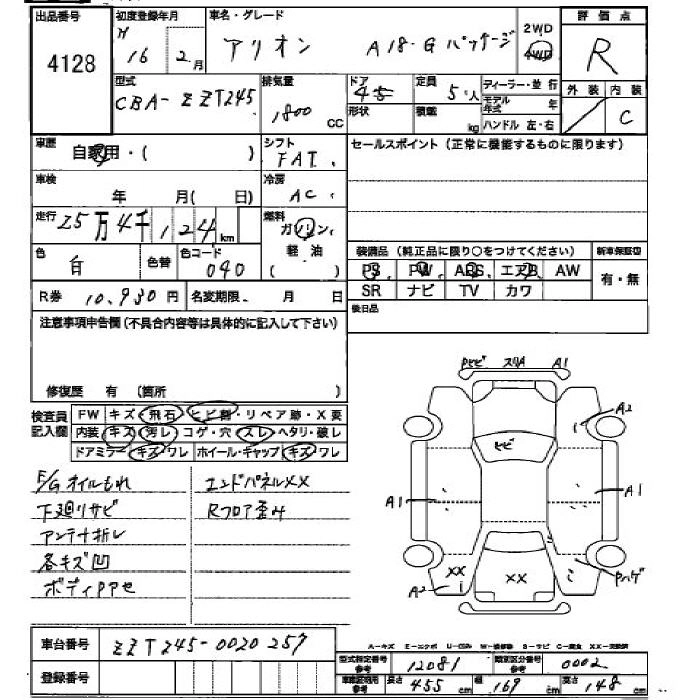 出品番号 初度登録年月 車名・グレード 2WD 評価点
4128 H 16 2月 アリオン A18・Gパッケージ 4WD R
型式 排気量 ドア 定員 ディーラー・並行 外装 内装
CBA-ZZT245 1800 CC 4 5人 モデル年式 年 / C
形状 積載 kg ハンドル 左・右
車歴 自家用・( ) シフト FAT. セールスポイント(正常に機能するものに限ります)
車検 年 月( 日) 冷房 AC.
走行 25万4千124km 燃料 ガソリン、
色 白 色替 色コード 040 軽油 ( ) 装備品(純正品に限り○をつけてください) 新車保証書
PS PW ABS エアB AW 有・無
R券 10,930円 名変期限、 月 日 SR ナビ TV カワ
注意事項申告欄(不具合内容等は具体的に記入して下さい) 後日品
修復歴 有 (箇所 )
検査員記入欄 FW キズ・飛石・ヒビ割・リペア跡・X要
内装 キズ・汚レ・コゲ・穴・スレ・ヘタリ・破レ
ドアミラー キズ・ワレ ホイール・キャップ キズ・ワレ
E/Gオイルもれ エンドパネルXX
下廻りサビ Rフロア歪み
アンテナ折レ
各キズ凹
ボディPアセ
Pヒビ スリA A1
A2
ヒビ
A1 A1
XX XX Pハゲ
A2
車台番号 ZZT245-0020257
登録番号
A-キズ E-エクボ U-凹み W-補修跡 S-サビ C-腐食 XX-交換済
型式指定番号 参考 12081 類別区分番号 参考 0002
車庫証明用 参考 長さ 455cm 幅 169cm 高さ 148cm